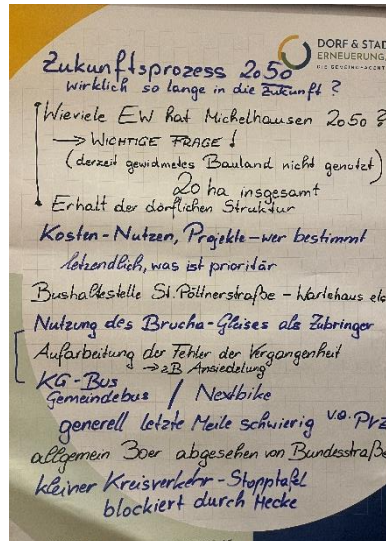 DORF & STADT
ERNEUERUNG
Zukunftsprozess 2050
wirklich so lange in die Zukunft?
Wieviele EW hat Michelhausen 2050?
→ WICHTIGE FRAGE!
(derzeit gewidmetes Bauland nicht genutzt)
20 ha insgesamt
Erhalt der dörflichen Struktur
Kosten-Nutzen, Projekte-wer bestimmt
letzendlich, was ist prioritär
Bushaltestelle St. Pöltnerstraße - Wartehaus
Nutzung des Brucha-Gleises als Zubringer
Aufarbeitung der Fehler der Vergangenheit
→ zB Ansiedelung
KG-Bus
Gemeindebus / Nextbike
generell letzte Meile schwierig v.a.
allgemein 30er abgesehen von Bundesstraße
kleiner Kreisverkehr-Stopptafel
blockiert durch Hecke